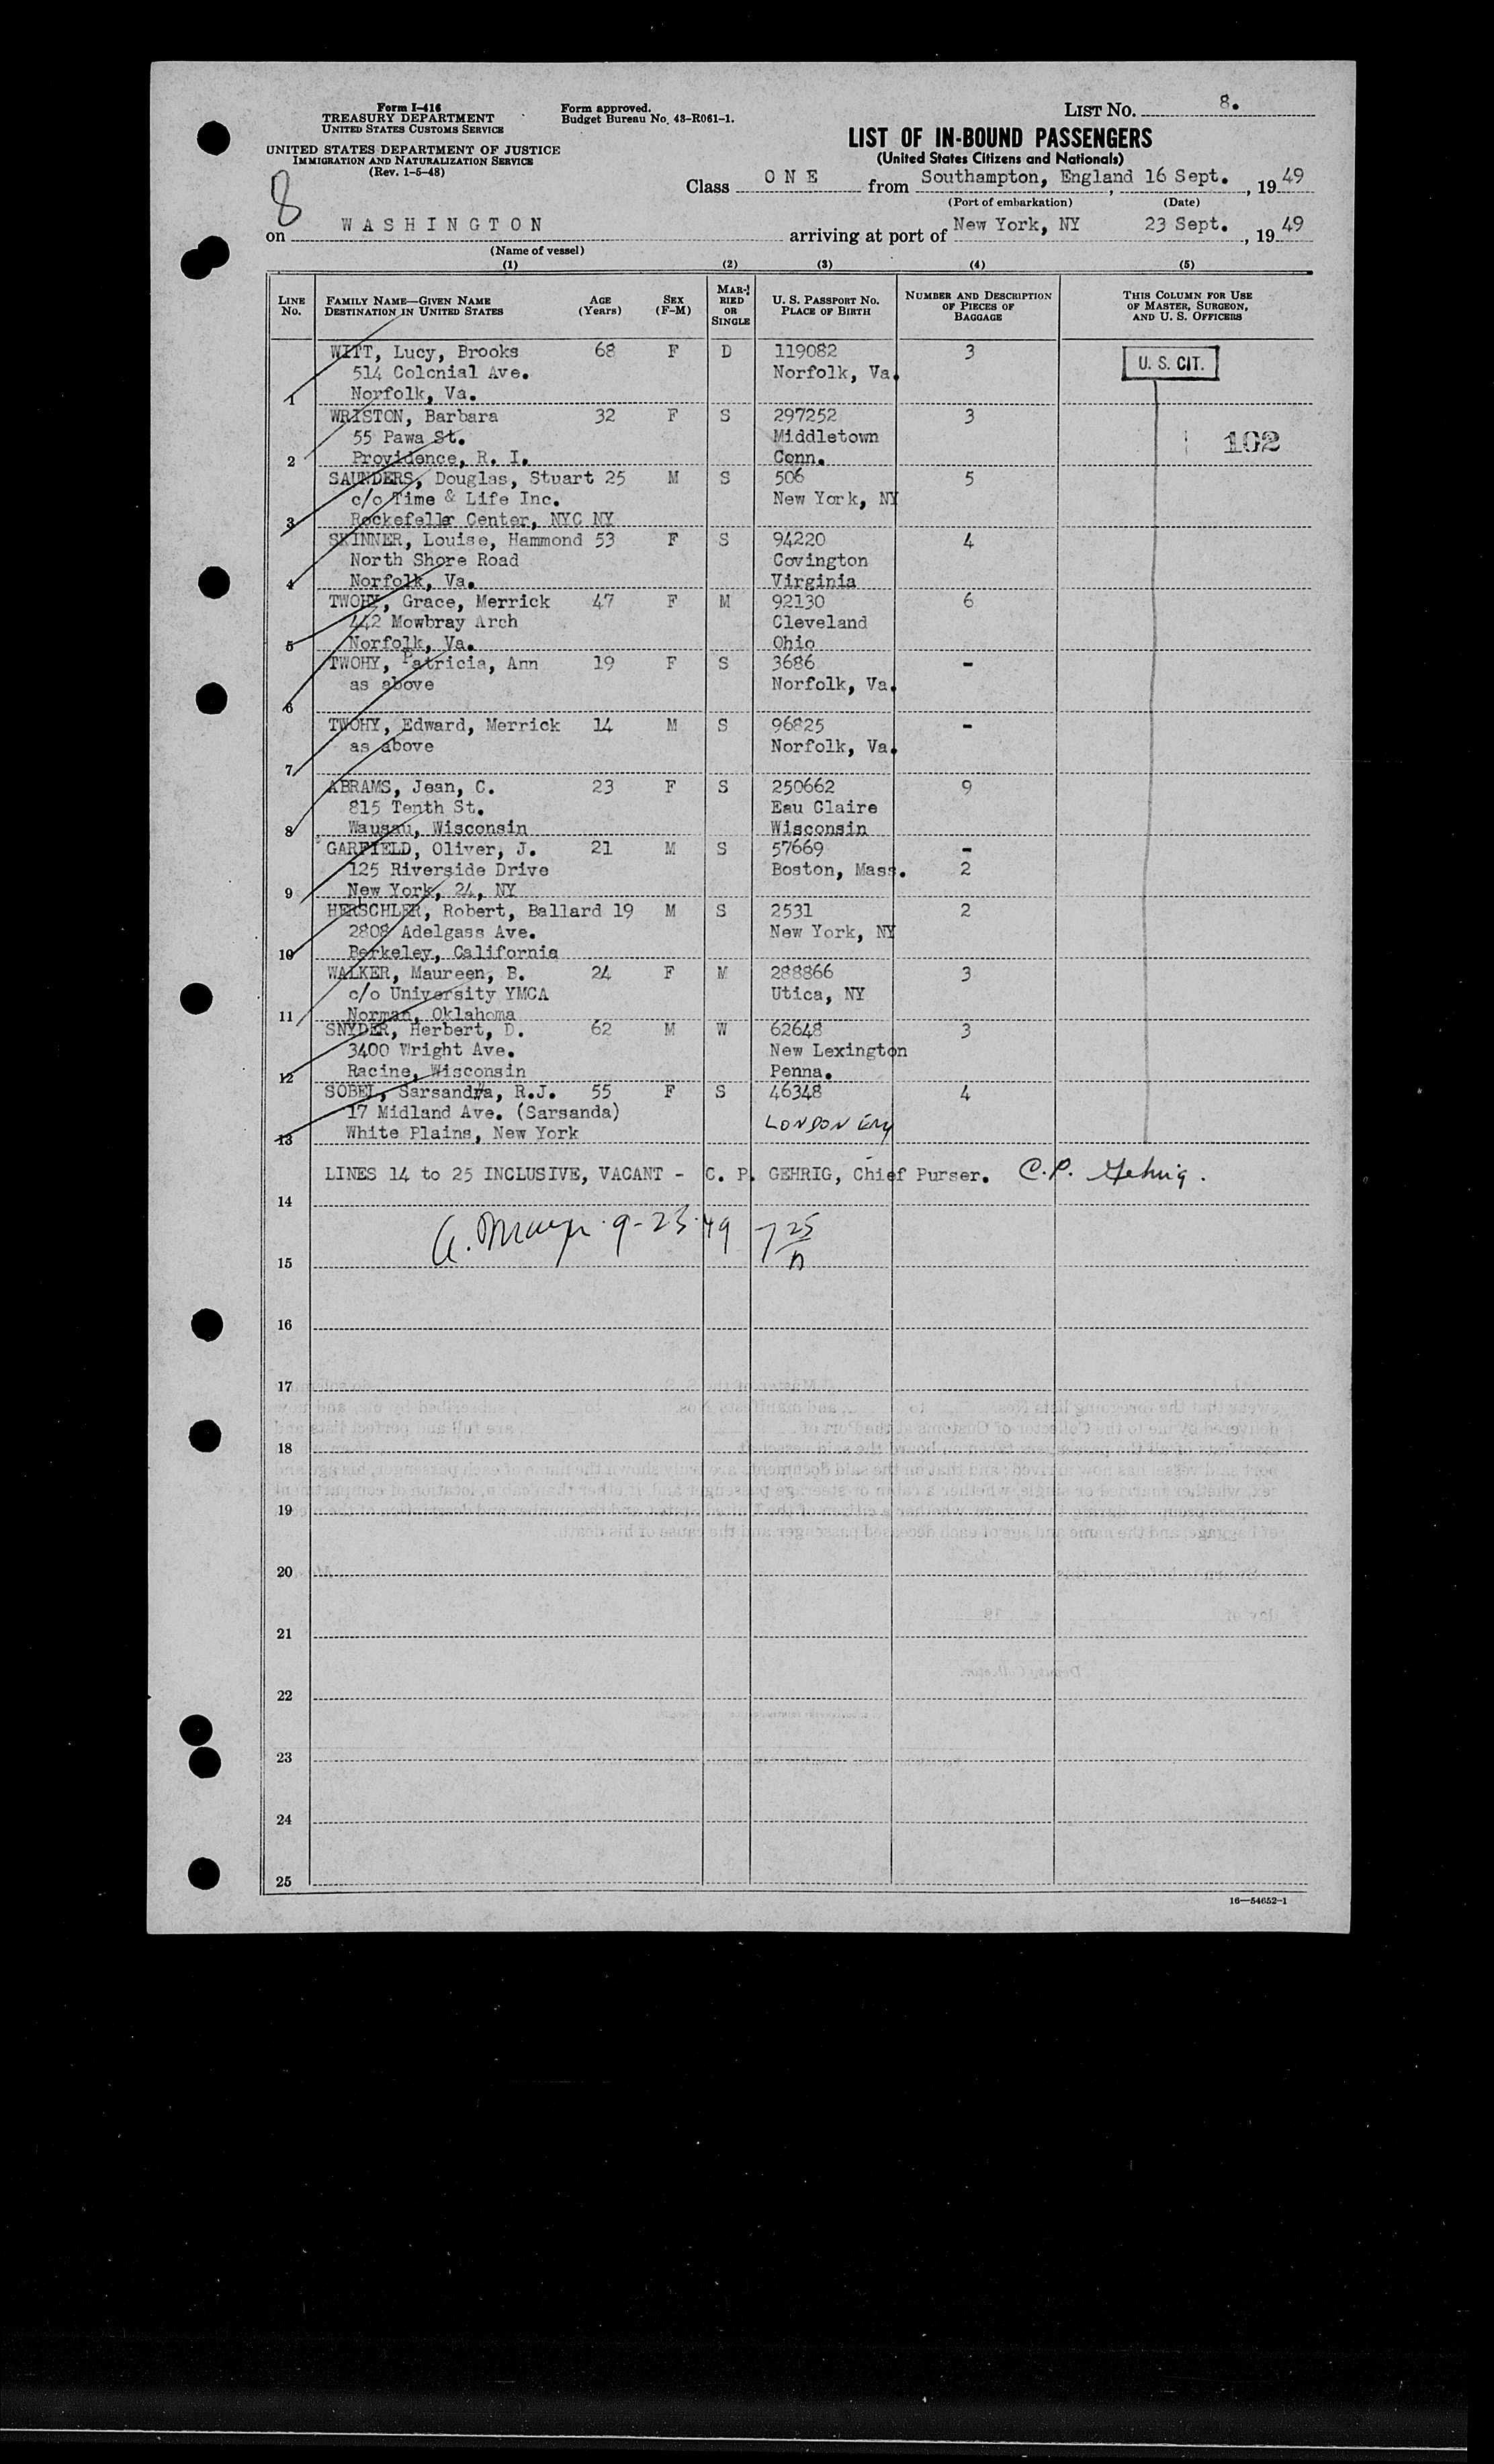 Form I-416
TREASURY DEPARTMENT
UNITED STATES CUSTOMS SERVICE
UNITED STATES DEPARTMENT OF JUSTICE
IMMIGRATION AND NATURALIZATION SERVICE
(Rev. 1-5-48)
Form approved.
Budget Bureau No. 43-R061-1.
LIST NO. 8.
LIST OF IN-BOUND PASSENGERS
(United States Citizens and Nationals)
Class ONE from Southampton, England 16 Sept., 1949
(Port of embarkation) (Date)
8
on WASHINGTON arriving at port of New York, NY 23 Sept., 1949
(Name of vessel)
(1) (2) (3) (4) (5)
LINE No. FAMILY NAME—GIVEN NAME DESTINATION IN UNITED STATES AGE (Years) SEX (F-M) MARRIED OR SINGLE U. S. PASSPORT NO. PLACE OF BIRTH NUMBER AND DESCRIPTION OF PIECES OF BAGGAGE THIS COLUMN FOR USE OF MASTER, SURGEON, AND U. S. OFFICERS
WITT, Lucy, Brooks 68 F D 119082 3 U. S. CIT.
514 Colonial Ave. Norfolk, Va.
1 Norfolk, Va.
WRISTON, Barbara 32 F S 297252 3
55 Pawa St. Middletown 102
2 Providence, R. I. Conn.
SAUNDERS, Douglas, Stuart 25 M S 506 5
c/o Time & Life Inc. New York, NY
3 Rockefellr Center, NYC NY
SKINNER, Louise, Hammond 53 F S 94220 4
North Shore Road Covington
4 Norfolk, Va. Virginia
TWOHY, Grace, Merrick 47 F M 92130 6
442 Mowbray Arch Cleveland
5 Norfolk, Va. Ohio
TWOHY, Patricia, Ann 19 F S 3686 -
as above Norfolk, Va.
6
TWOHY, Edward, Merrick 14 M S 96825 -
as above Norfolk, Va.
7
ABRAMS, Jean, C. 23 F S 250662 9
815 Tenth St. Eau Claire
8 Wausau, Wisconsin Wisconsin
GARFIELD, Oliver, J. 21 M S 57669 -
125 Riverside Drive Boston, Mass. 2
9 New York, 24, NY
HERSCHLER, Robert, Ballard 19 M S 2531 2
2808 Adelgass Ave. New York, NY
10 Berkeley, California
WALKER, Maureen, B. 24 F M 288866 3
c/o University YMCA Utica, NY
11 Norman, Oklahoma
SNYDER, Herbert, D. 62 M W 62648 3
3400 Wright Ave. New Lexington
12 Racine, Wisconsin Penna.
SOBEL, Sarsandra, R.J. 55 F S 46348 4
17 Midland Ave. (Sarsanda) LONDON Eng
13 White Plains, New York
LINES 14 to 25 INCLUSIVE, VACANT - C. P. GEHRIG, Chief Purser. C.P. Gehrig.
14
9-23-49 7 25
15
16
17
18
19
20
21
22
23
24
25
16—54652-1